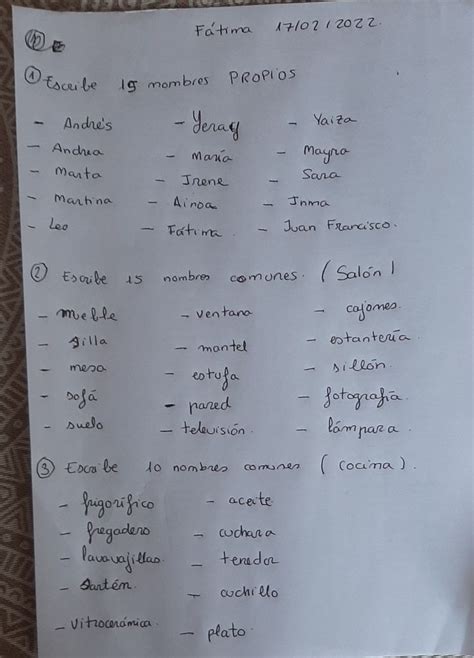 Fátima 17/02/2022.
① Escribe 15 nombres PROPIOS
- Andrés - Yeray - Yaiza
- Andrea - María - Mayra
- Marta - Irene - Sara
- Martina - Ainoa - Inma
- Leo - Fátima. - Juan Francisco.
② Escribe 15 nombres comunes. (Salón)
- meble - ventana - cajones.
- silla - mantel - estantería.
- mesa - estufa - sillón.
- sofá - pared - fotografía.
- suelo - televisión. - lámpara.
③ Escribe 10 nombres comunes (cocina).
- frigorífico - aceite
- fregadero - cuchara
- lavavajillas. - tenedor
- Sartén. - cuchillo
- vitrocerámica. - plato.